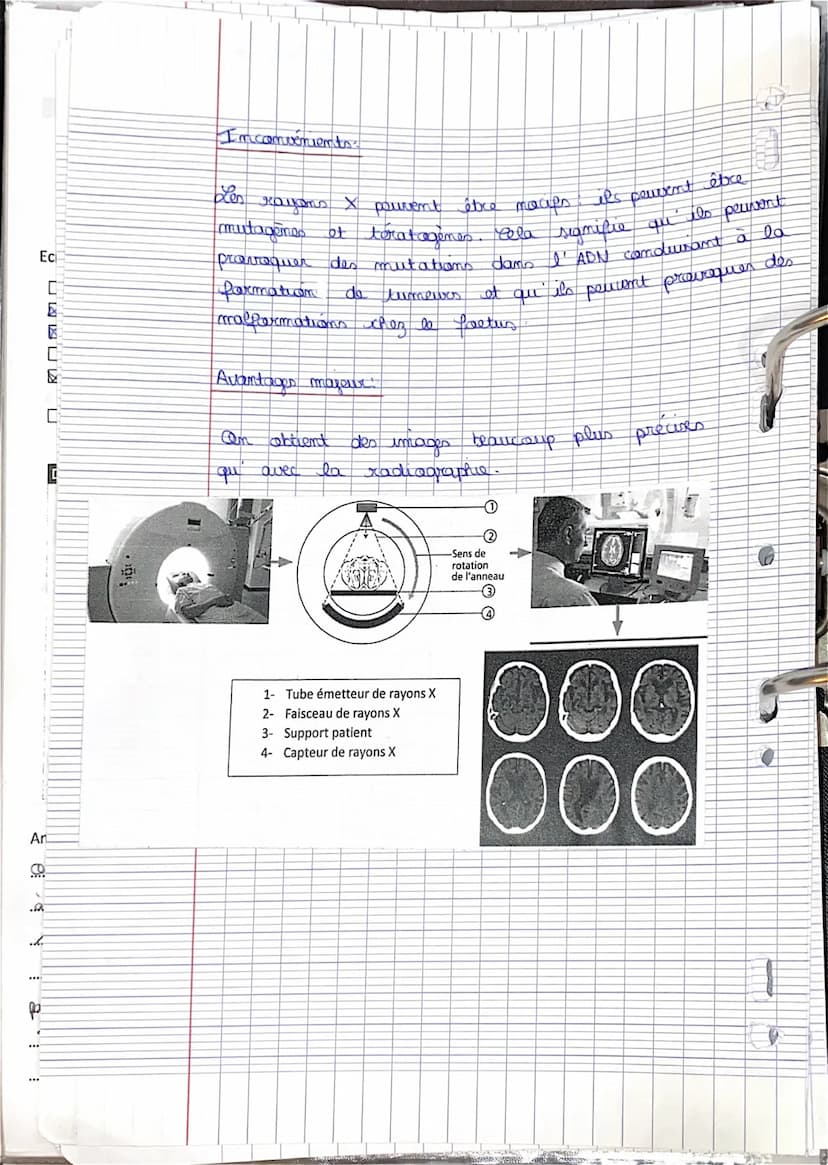 Inconvénients:
Les rayons X peuvent être nocifs : ils peuvent être
mutagènes et tératogènes. Cela signifie qu'ils peuvent
provoquer des mutations dans l'ADN conduisant à la
formation de tumeurs et qu'ils peuvent provoquer des
malformations chez le foetus.
Avantages majeur:
On obtient des images beaucoup plus précises
qu'avec la radiographie.
1
2
Sens de
rotation
de l'anneau
3
4
1- Tube émetteur de rayons X
2- Faisceau de rayons X
3- Support patient
4- Capteur de rayons X
Ec